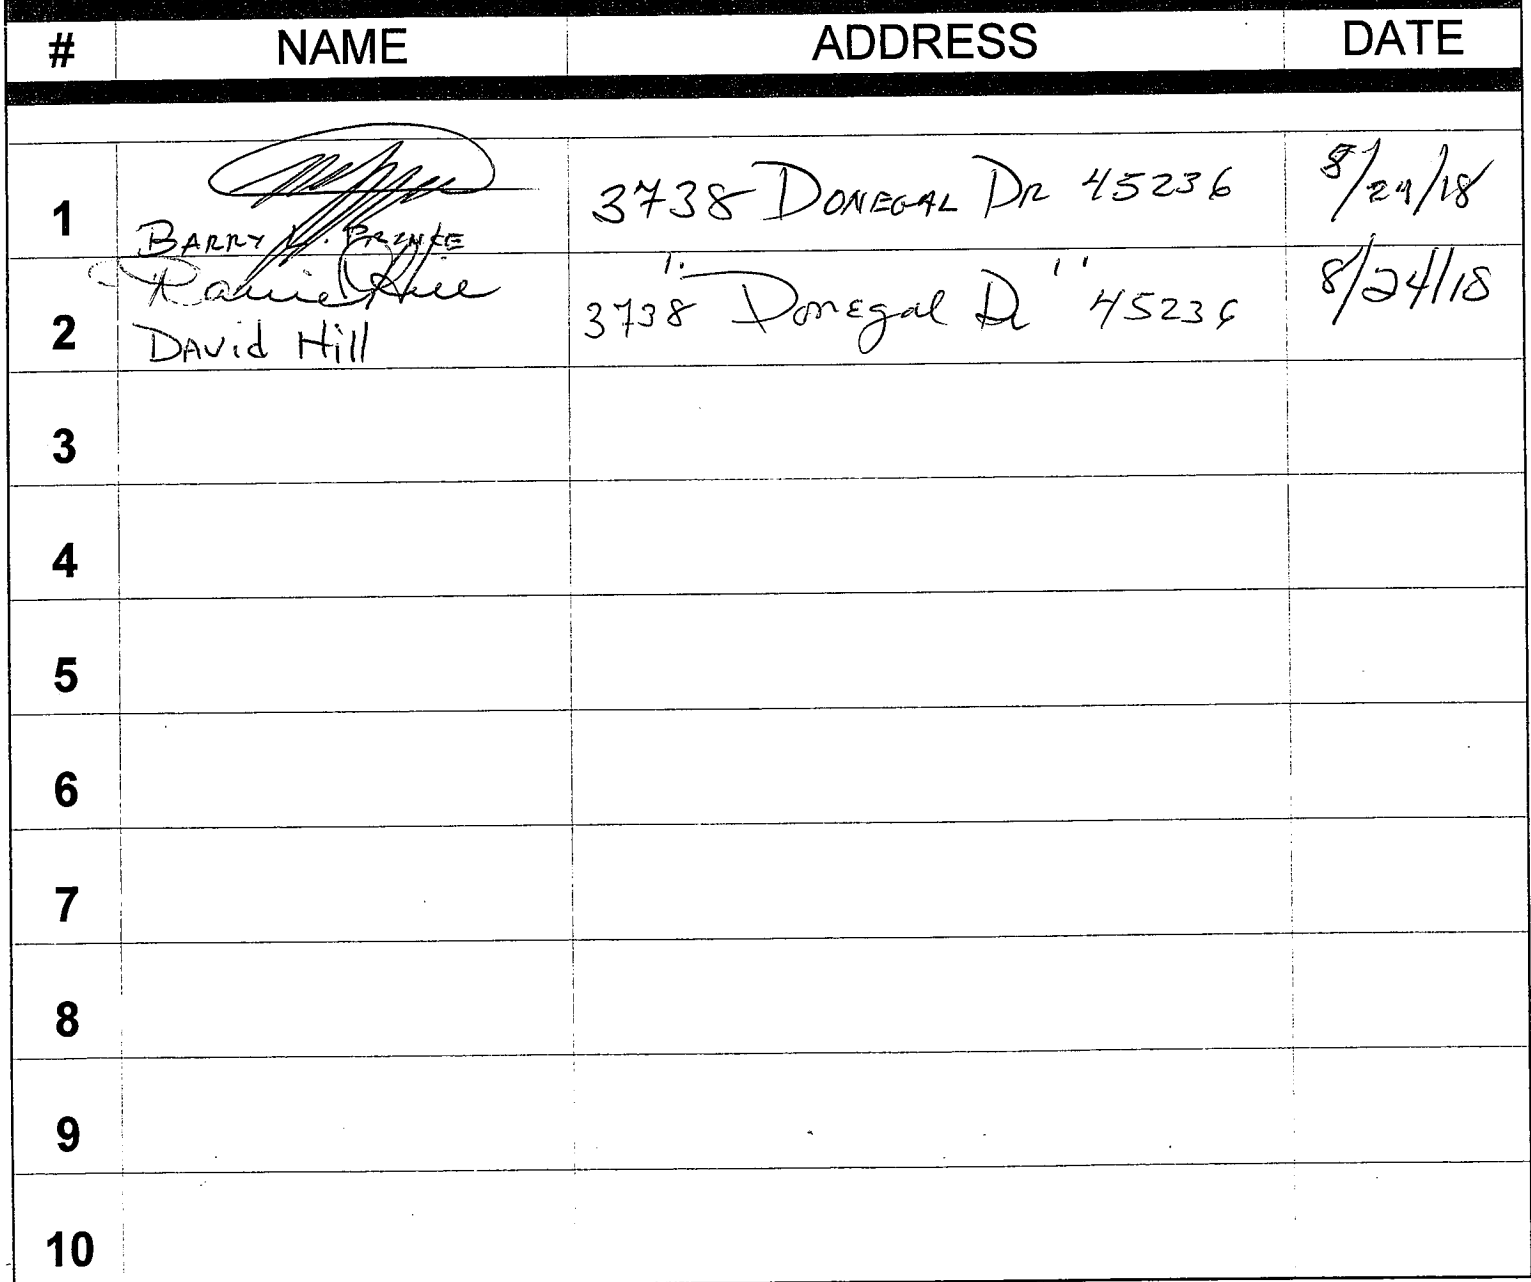 # NAME ADDRESS DATE
1 BARRY 3738 DONEGAL DR 45236 8/24/18
2 David Hill 3738 Donegal Dr 45236 8/24/18
3
4
5
6
7
8
9
10